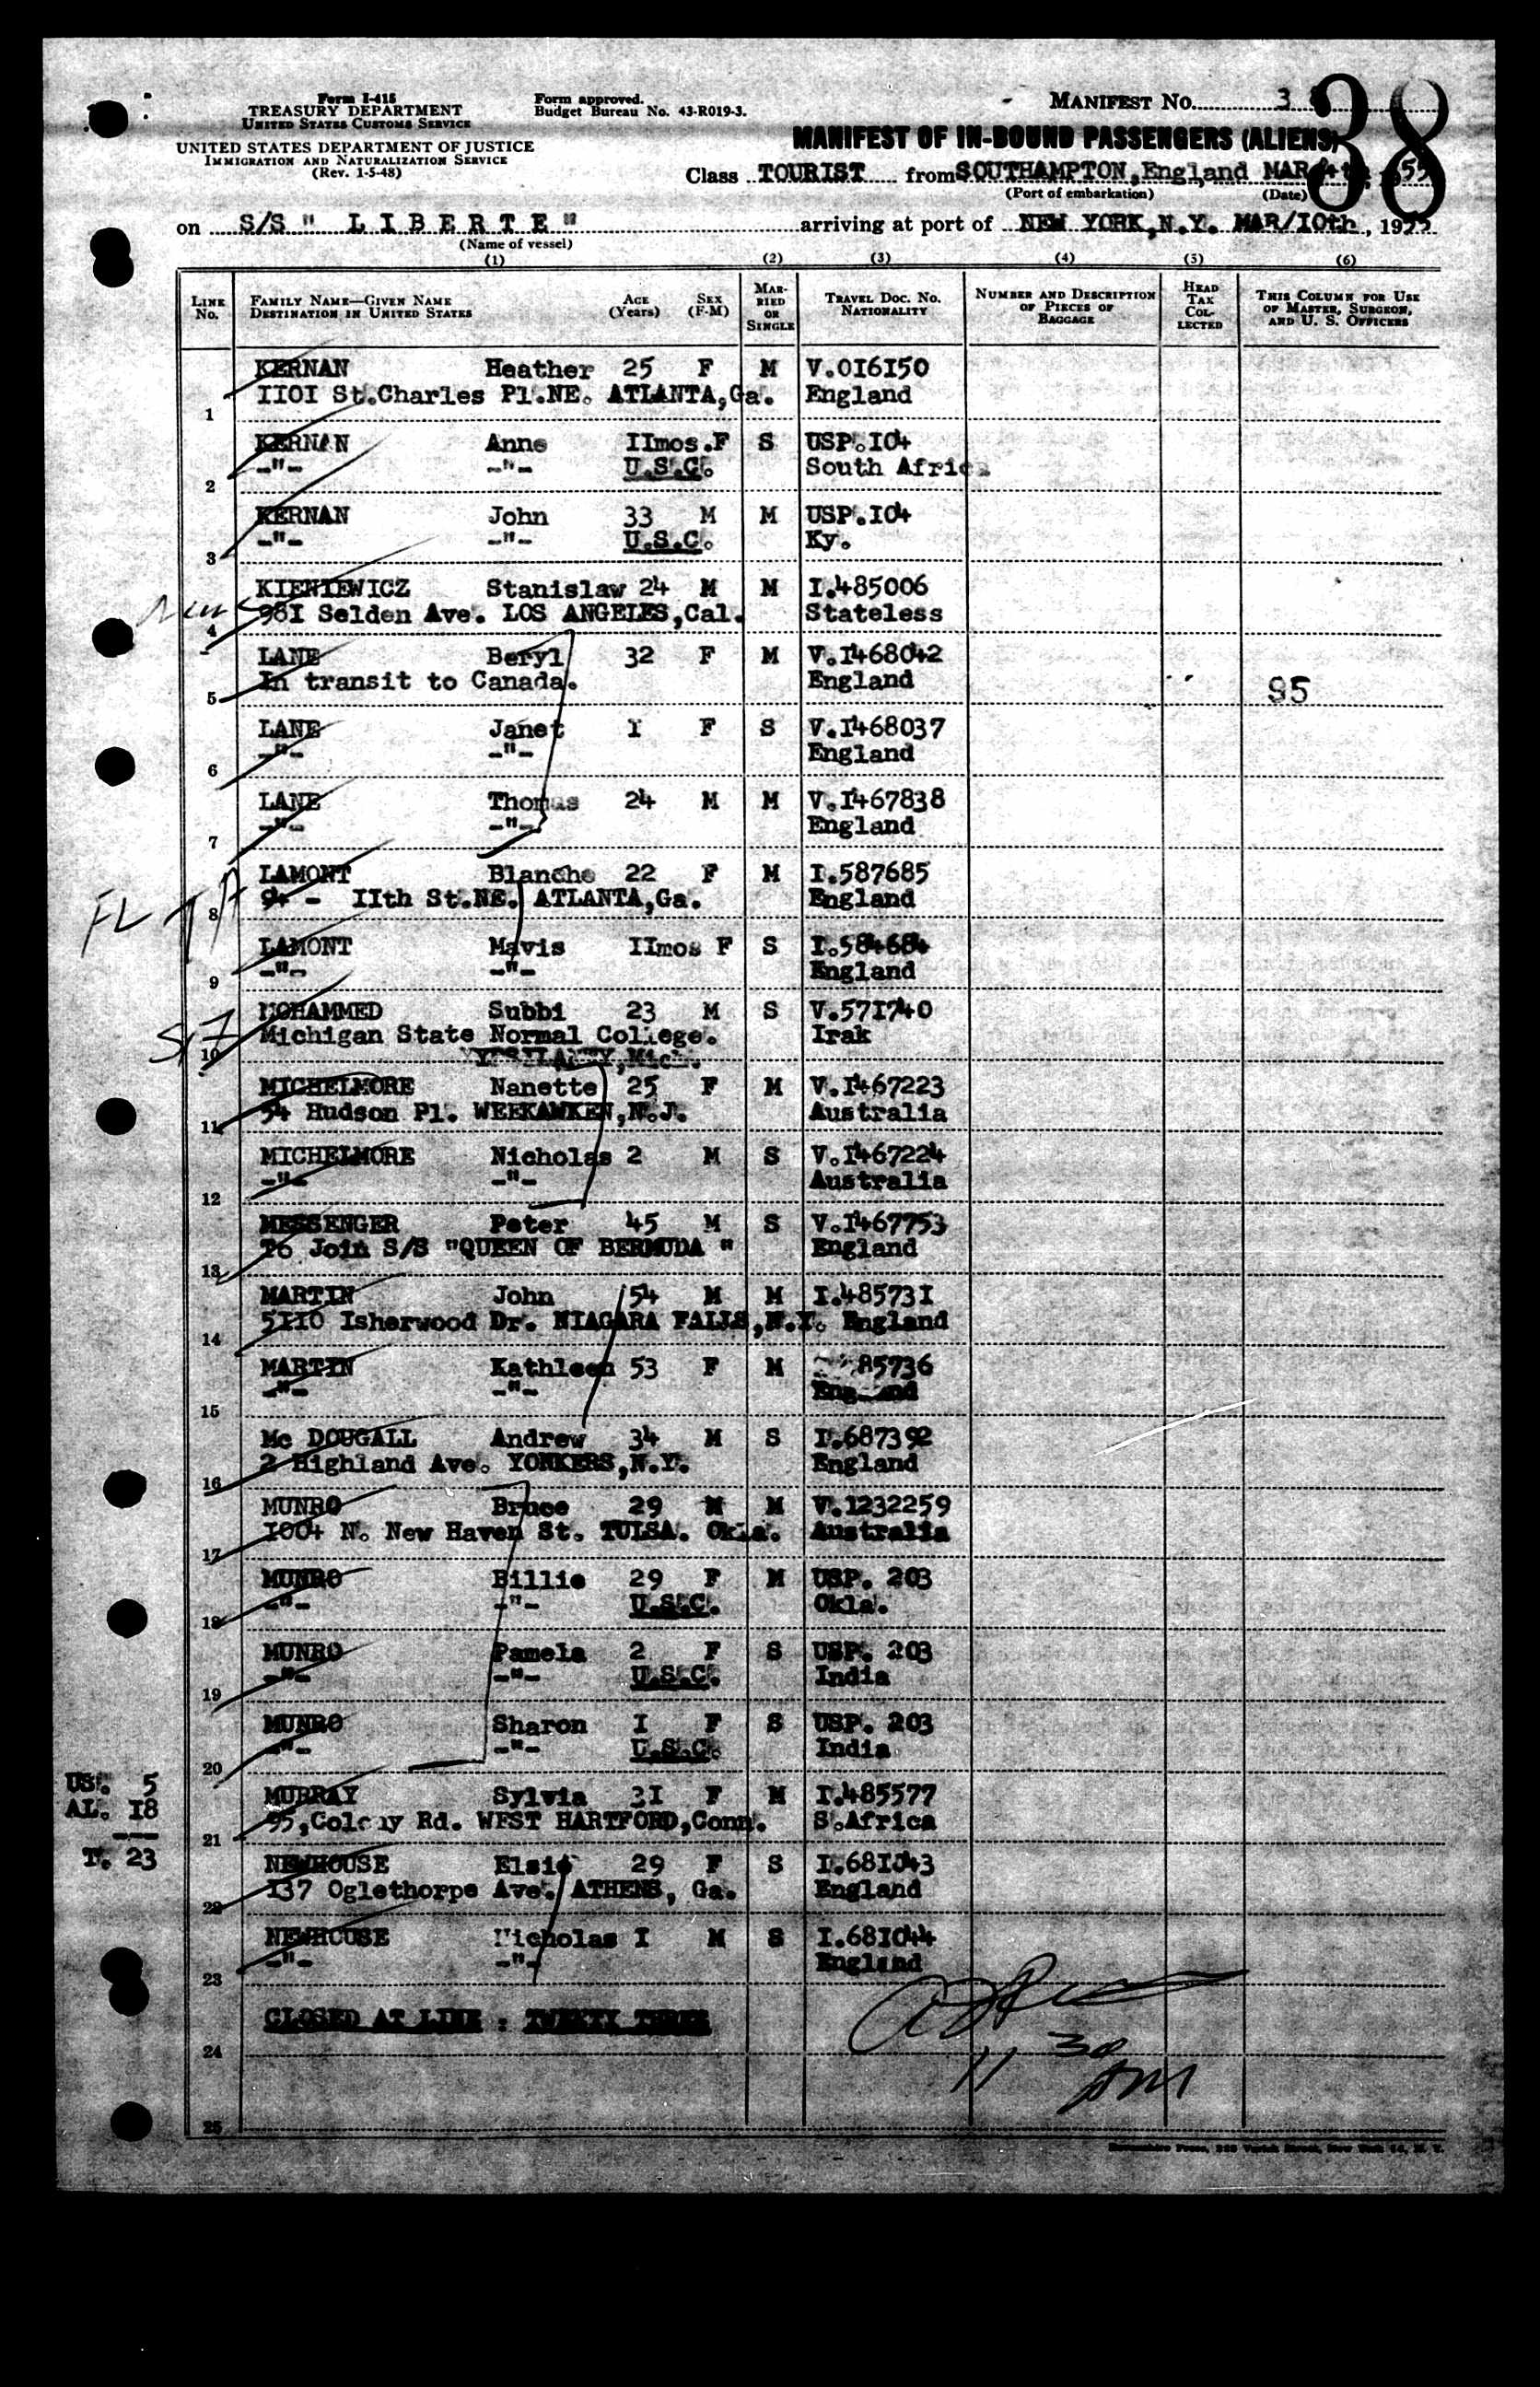 Form I-415
TREASURY DEPARTMENT
UNITED STATES CUSTOMS SERVICE
UNITED STATES DEPARTMENT OF JUSTICE
IMMIGRATION AND NATURALIZATION SERVICE
(Rev. 1-5-48)
Form approved.
Budget Bureau No. 43-R019-3.
MANIFEST No. 38
38
MANIFEST OF IN-BOUND PASSENGERS (ALIENS)
Class TOURIST from SOUTHAMPTON,England MAR 4th 55
(Port of embarkation) (Date)
on S/S " L I B E R T E " arriving at port of NEW YORK,N.Y. MAR/IOth, 1955
(Name of vessel)
(1) (2) (3) (4) (5) (6)
LINE No. FAMILY NAME—GIVEN NAME DESTINATION IN UNITED STATES AGE (Years) SEX (F-M) MARRIED OR SINGLE TRAVEL DOC. NO. NATIONALITY NUMBER AND DESCRIPTION OF PIECES OF BAGGAGE HEAD TAX COLLECTED THIS COLUMN FOR USE OF MASTER, SURGEON, AND U. S. OFFICERS
KERNAN Heather 25 F M V.OI6I50
1 IIOI St.Charles Pl.NE. ATLANTA,Ga. England
KERNAN Anne IImos.F S USP.IO4
2 -"- -"- U.S.C. South Africa
KERNAN John 33 M M USP.IO4
3 -"- -"- U.S.C. Ky.
KIENIEWICZ Stanislaw 24 M M I.485006
4 981 Selden Ave. LOS ANGELES,Cal. Stateless
LANE Beryl 32 F M V.I468042
5 In transit to Canada. England 95
LANE Janet I F S V.I468037
6 -"- -"- England
LANE Thomas 24 M M V.I467838
7 -"- -"- England
LAMONT Blanche 22 F M I.587685
FL 8 94 - IIth St.NE. ATLANTA,Ga. England
LAMONT Mavis IImos F S I.584684
9 -"- -"- England
MOHAMMED Subbi 23 M S V.57I740
10 Michigan State Normal College. Irak
YPSILANTY,Mich.
MICHELMORE Nanette 25 F M V.I467223
11 54 Hudson Pl. WEEKAWKEN,N.J. Australia
MICHELMORE Nicholas 2 M S V.I467224
12 -"- -"- Australia
MESSENGER Peter 45 M S V.I467753
13 To Join S/S "QUEEN OF BERMUDA " England
MARTIN John 54 M M I.48573I
14 5II0 Isherwood Dr. NIAGARA FALLS,N.Y. England
MARTIN Kathleen 53 F M 85736
15 -"- -"- England
Mc DOUGALL Andrew 34 M S I.687392
16 2 Highland Ave. YONKERS,N.Y. England
MUNRO Bruce 29 M M V.1232259
17 1004 N. New Haven St. TULSA. Okla. Australia
MUNRO Billie 29 F M USP. 203
18 -"- -"- U.S.C. Okla.
MUNRO Pamela 2 F S USP. 203
19 -"- -"- U.S.C. India
MUNRO Sharon I F S USP. 203
20 -"- -"- U.S.C. India
US. 5
AL. I8
T. 23
MURRAY Sylvia 3I F M I.485577
21 95,Colony Rd. WEST HARTFORD,Conn. S.Africa
NEWHOUSE Elsie 29 F S I.681043
22 I37 Oglethorpe Ave. ATHENS, Ga. England
NEWHOUSE Nicholas I M S I.68I044
23 -"- -"- England
CLOSED AT LINE : TWENTY THREE
24
11 30 AM
25